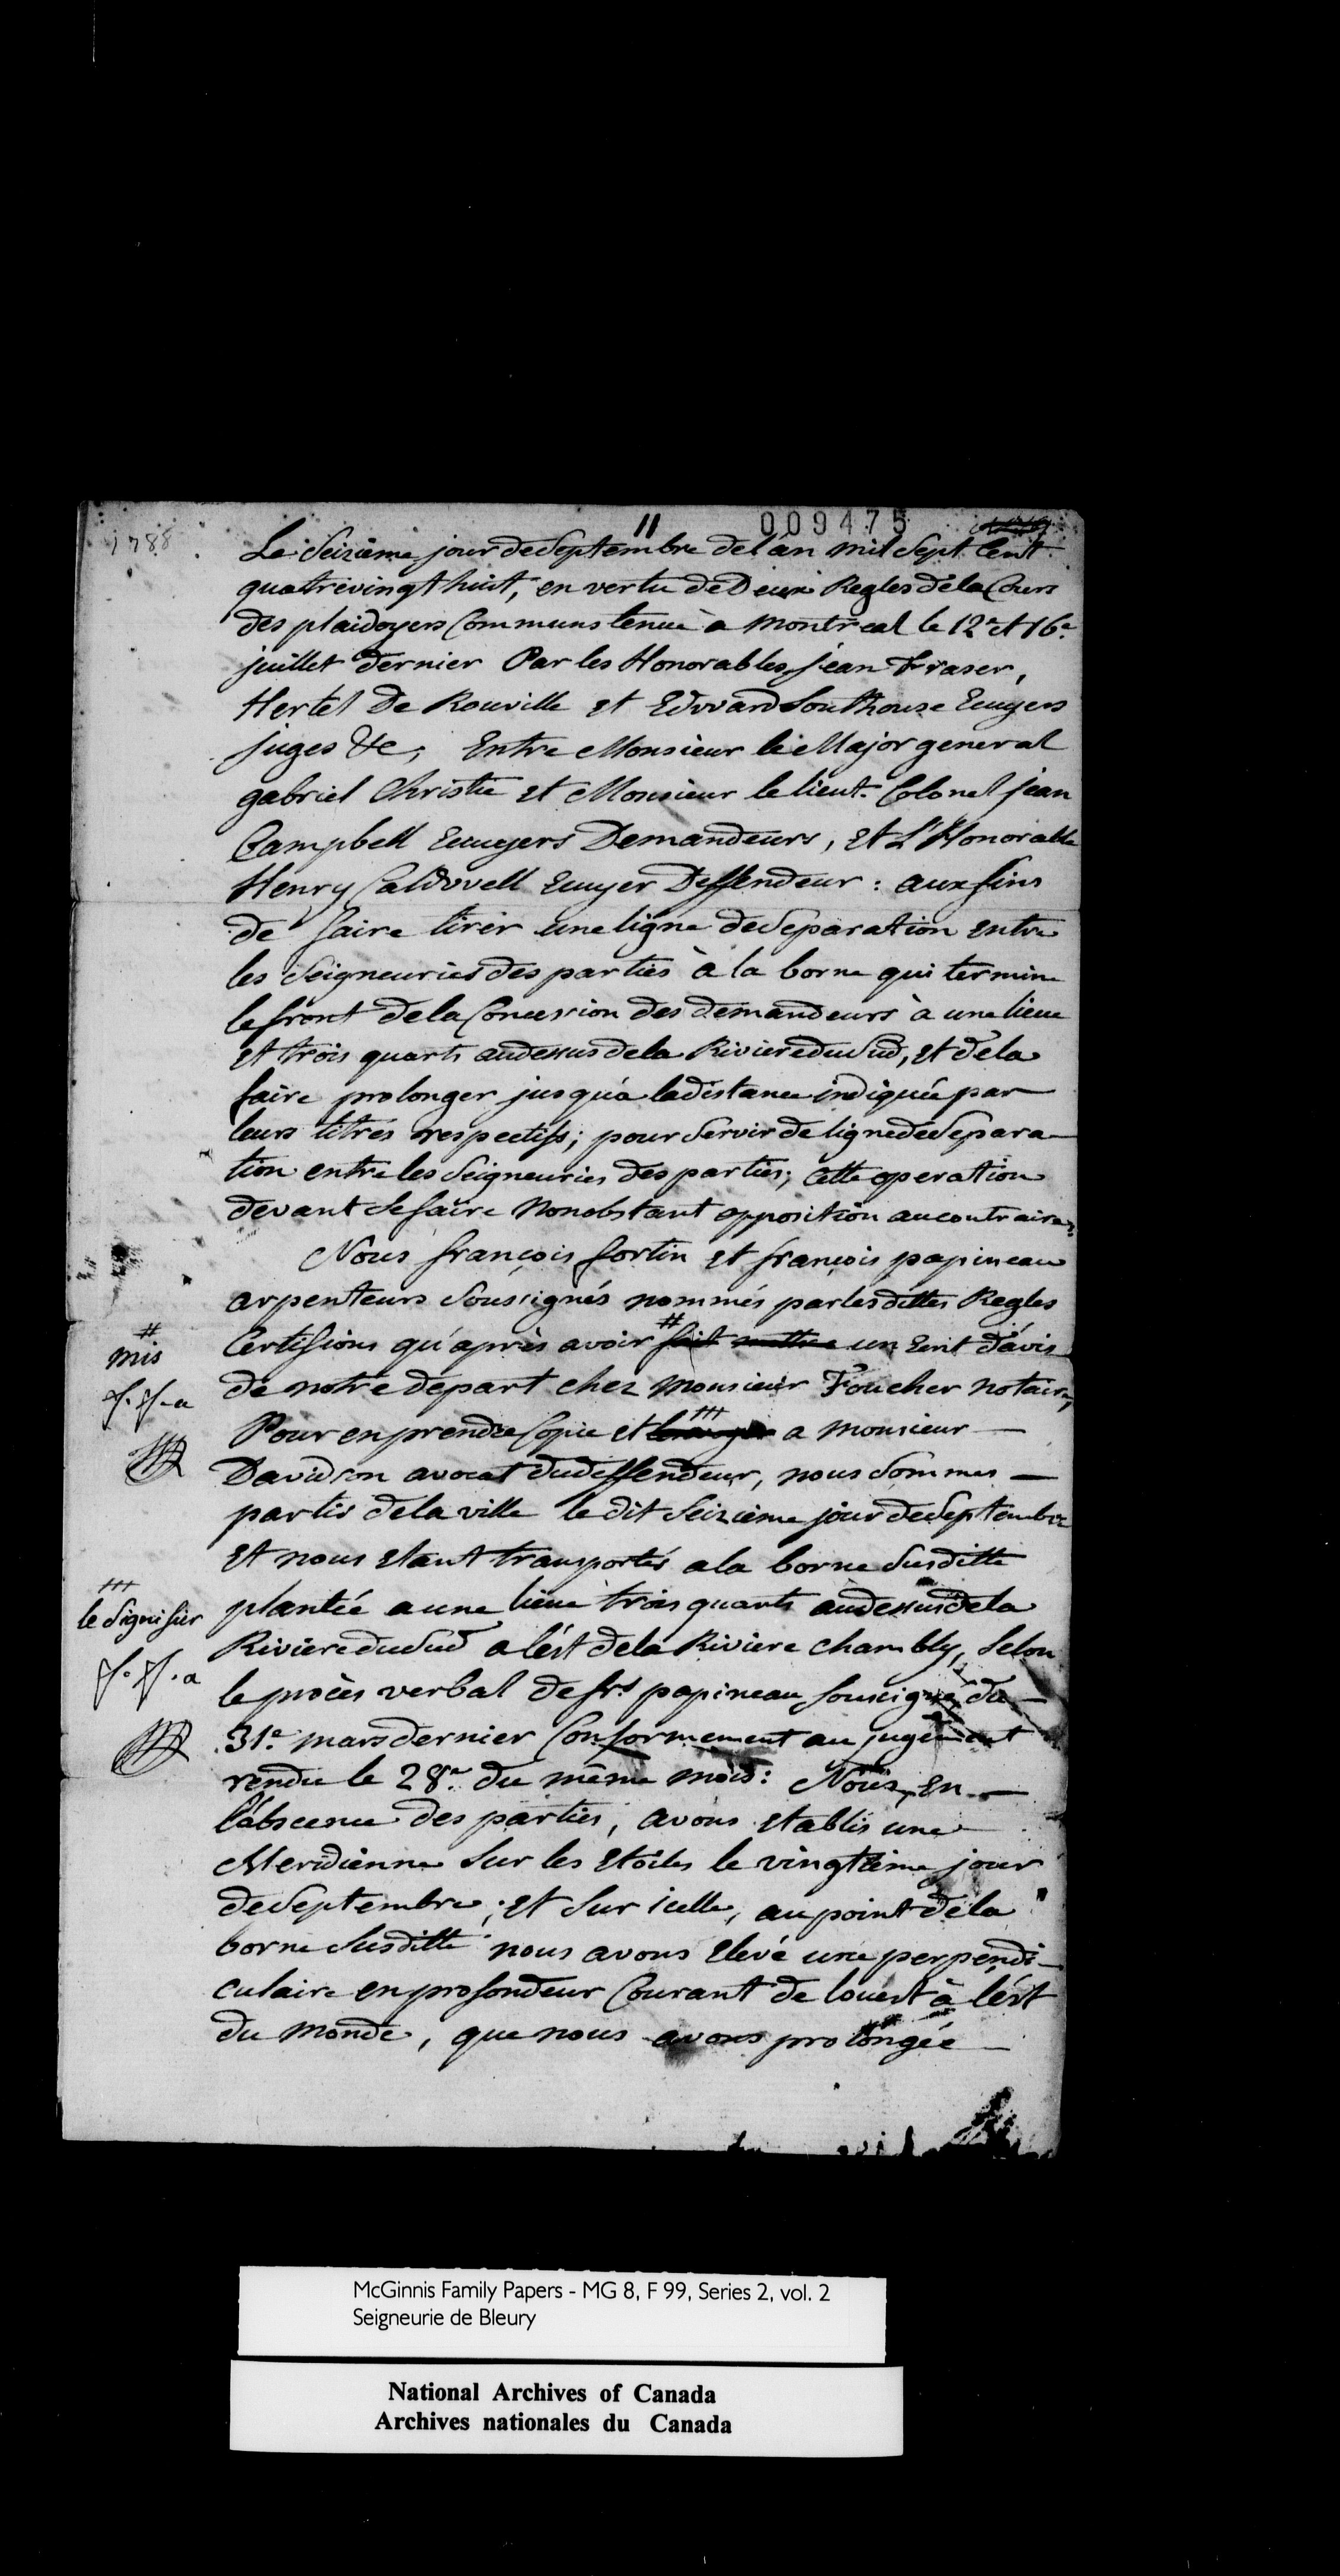 1788
11
009475
Le Seizième jour de Septembre de l'an mil Sept Cent
quatrevingt huit, en vertu de Deux Regles de la Cour
des plaidoyers Communs tenue à Montreal le 12e et 16e
juillet dernier Par les Honorables jean Fraser,
Hertel De Rouville et Edward Southouse Ecuyers
juges &c, Entre Monsieur le Major general
gabriel Christie et Monsieur le lieut. Colonel jean
Campbell Ecuyers Demandeurs, et L'Honorable
Henry Caldwell Ecuyer Deffendeur : aux fins
de faire tirer une ligne de Separation entre
les Seigneuries des parties à la borne qui termine
le front de la Concession des demandeurs à une lieue
et trois quarts audessus de la Riviere du Sud, et de la
faire prolonger jusqu'à la distance indiquée par
leurs titres respectifs; pour Servir de ligne de Separa-
tion entre les Seigneuries des parties; cette operation
devant Se faire Nonobstant opposition au contraire
Nous françois fortin et françois papineau
arpenteurs Soussignés nommés par les dittes Regles
Certifions qu'après avoir # fait mettre un Ecrit d'avis
# mis
f. f. a
de notre depart chez Monsieur Foucher notaire,
Pour en prendre Copie et a monsieur
Davidson avocat du deffendeur, nous Sommes
partis de la ville le dit Seizième jour de Septembre
Et nous etant transportés a la borne Susditte
plantée a une lieue trois quarts audessus de la
le Signifier
f. f. a
Riviere du Sud a l'ést de la Riviere Chambly, Selon
le procès verbal de frs papineau soussigné du
31e mars dernier Conformement au jugement
rendu le 28e du même mois : Nous, en
l'abscence des parties, avons etablis une
Meridienne Sur les Etoiles le vingtième jour
de Septembre ; et Sur icelle, au point de la
borne Susditte nous avons Elevé une perpendi-
culaire en profondeur Courant de louest à l'ést
du Monde, que nous avons prolongée
McGinnis Family Papers - MG 8, F 99, Series 2, vol. 2
Seigneurie de Bleury
National Archives of Canada
Archives nationales du Canada